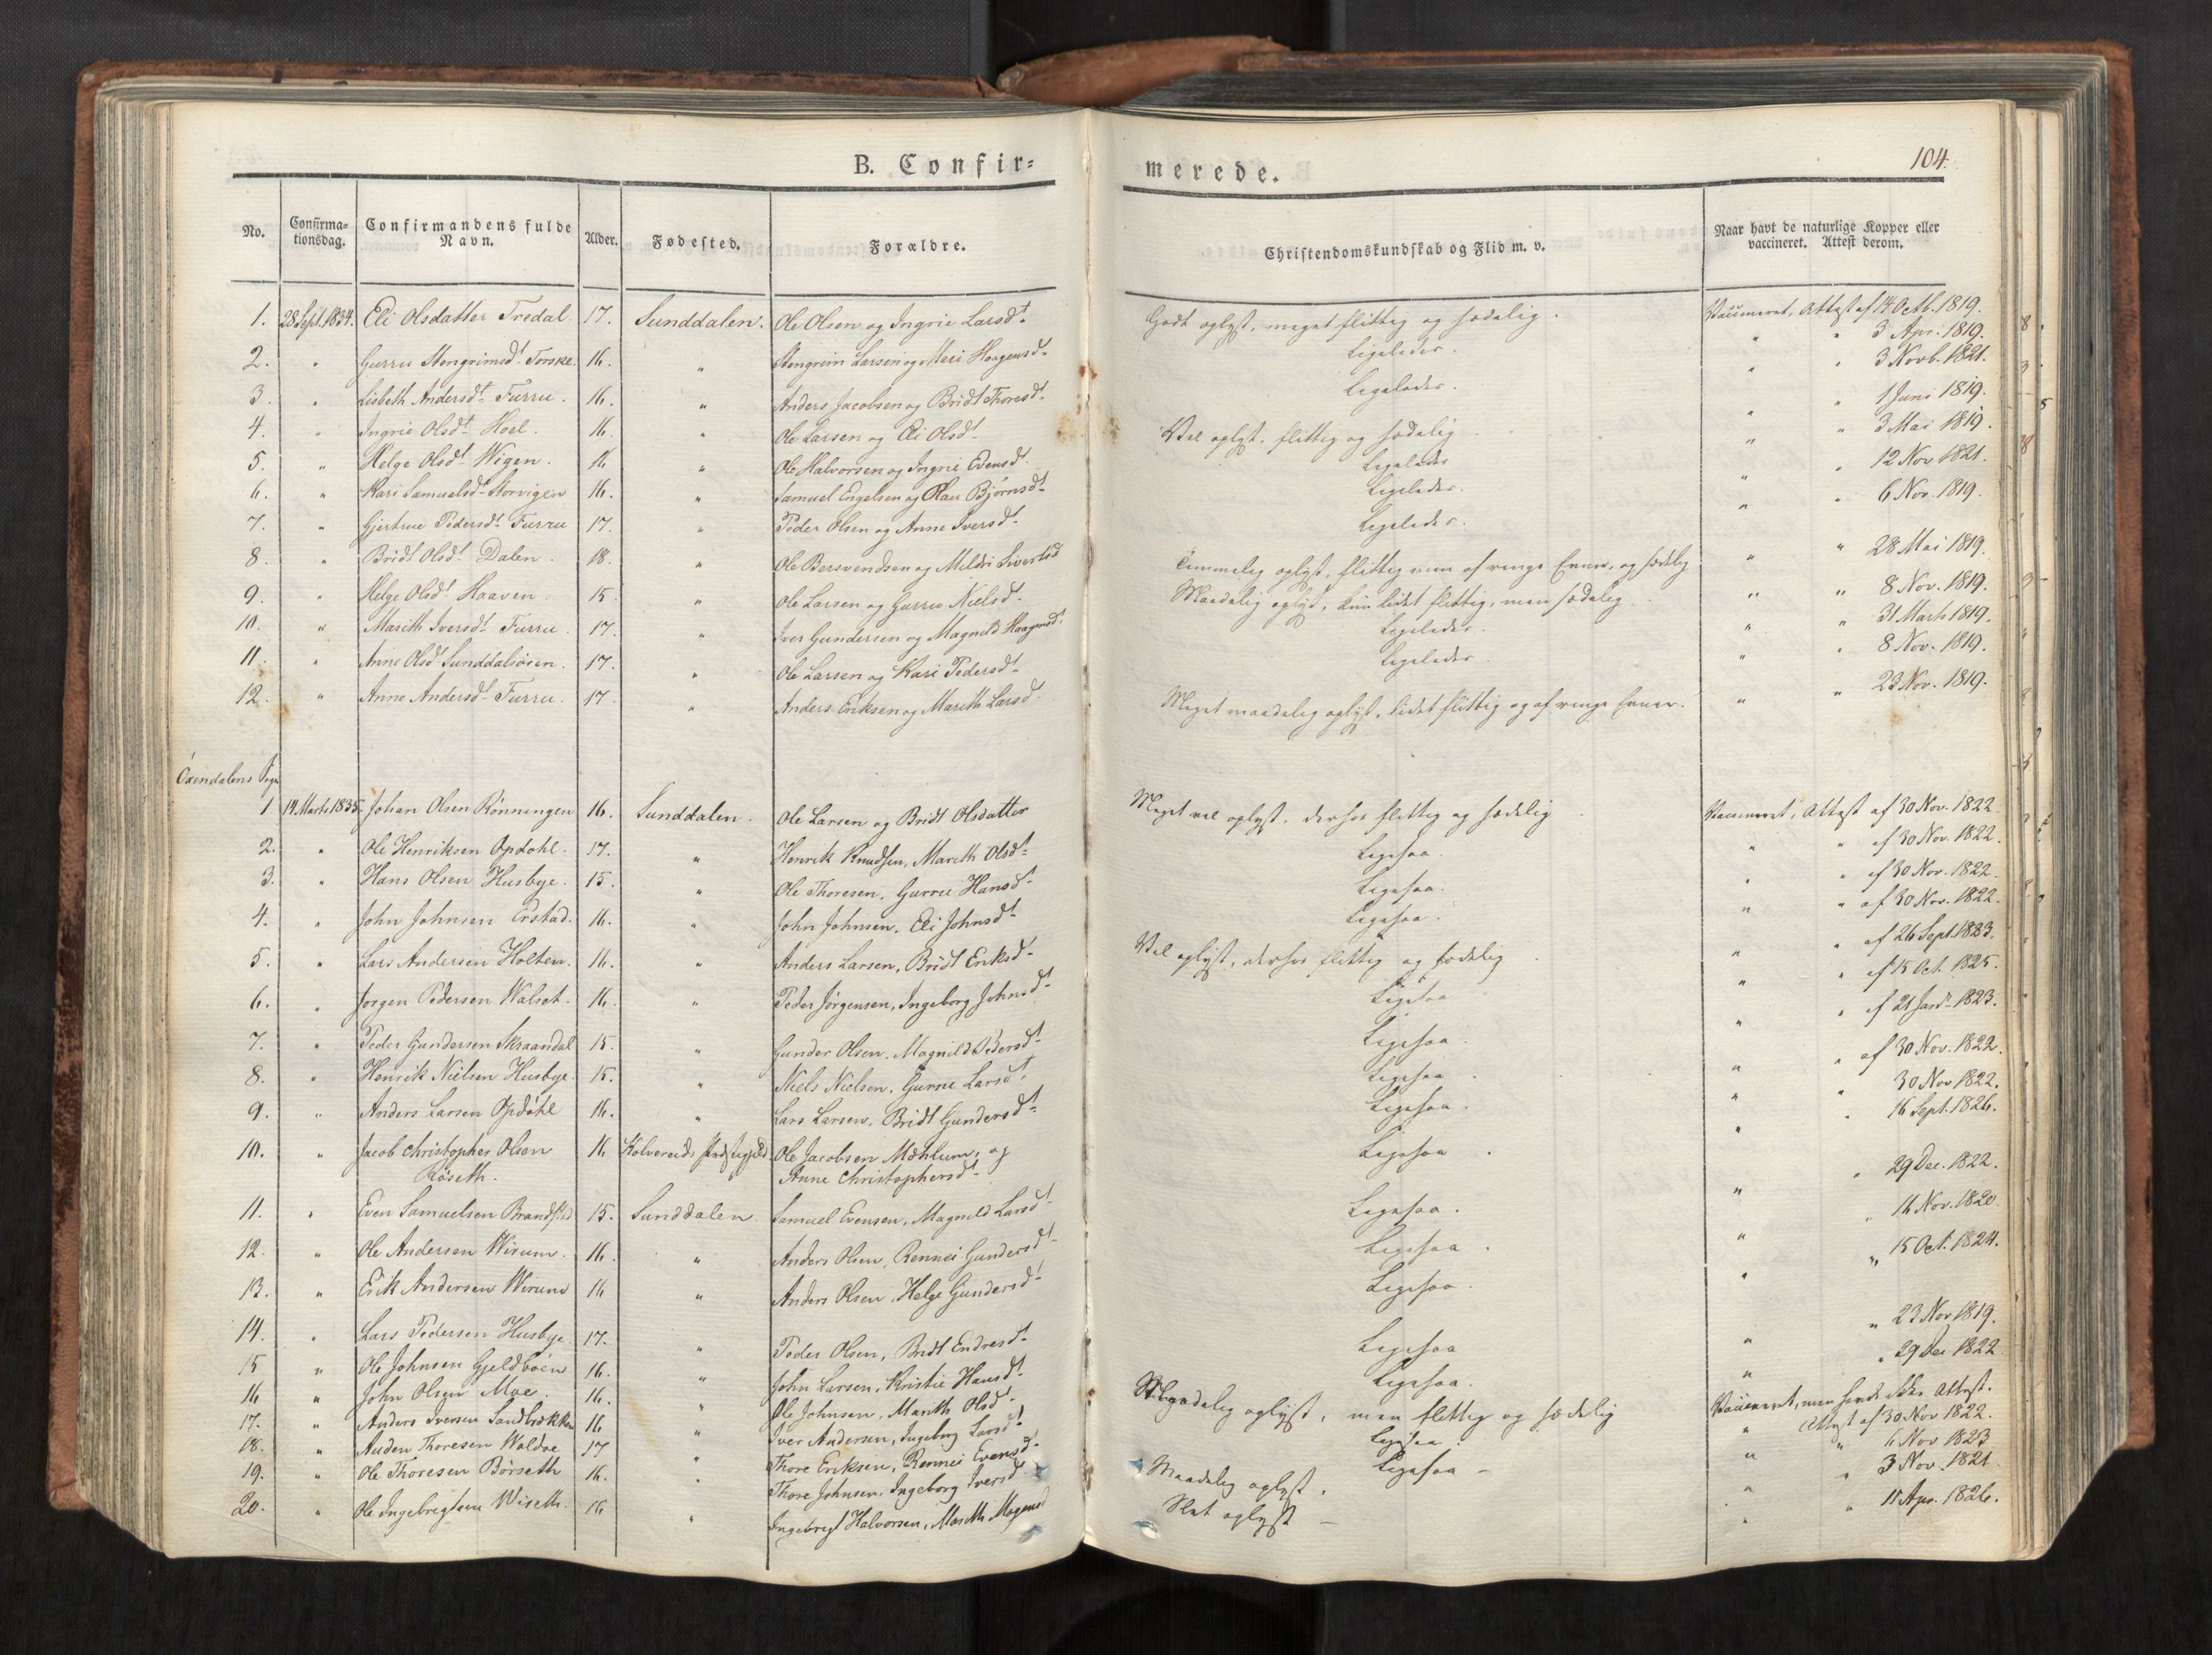 B. Confir=
merede.
104.
No.
Confirma-
tionsdag.
Confirmandens fulde
Navn.
Alder.
Fødested.
Forældre.
Christendomskundskab og Flid m. v.
Naar havt de naturlige Kopper eller
vaccineret. Attest derom.
1. 28 Sept. 1834. Eli Olsdatter Fredal. 17. Sunddalen. Ole Olsen og Ingrie Larsdt. Godt oplyst, meget flittig og sædelig. Vaccineret, Attest af 14 Octb. 1819.
2. " Gurru Stengrimsdt. Forske 16. " Stengrim Larsen og Mari Haagensd. Ligeledes. " " 3 Apr. 1819.
3. " Lisbeth Andersdt. Furru. 16. " Anders Jacobsen og Bridt Thoresdt. Ligeledes. " " 3 Novb. 1821.
4. " Ingrie Olsdt. Hoel. 16. " Ole Larsen og Eli Olsdt. Vel oplyst, flittig og sædelig " " 1 Juni 1819.
5. " Helge Olsdt. Wigen. 16 " Ole Halvorsen og Ingrie Evensdt. Ligeledes " " 3 Mai 1819.
6. " Kari Samuelsdt. Storvigen 16. " Samuel Engelsen og Bjørnsdt. Ligeledes. " " 12 Nov 1821.
7. " Gjertrue Pedersdt. Furru 17. " Peder Olsen og Anne Iversdt. Ligeledes. " " 6 Nov. 1819.
8. " Bridt Olsdt. Dalen. 18. " Ole Bersvendsen og Mildri Sivertsd Temmelig oplyst, flittig men af ringe Evner, og sædelig " " 28 Mai 1819.
9. " Helge Olsdt. Haaven. 15 " Ole Larsen og Gurru Nielsd. Maadelig oplyst, kun lidet flittig, men sædelig. " " 8 Nov. 1819.
10. " Marith Iversdt. Furru. 17. " Iver Gundersen og Magnild Haagensdt. Ligeledes. " " 31 Marts 1819.
11. " Anne Olsdt. Sunddalsøren. 17. " Ole Larsen og Kari Pedersdt. Ligeledes. " " 8 Nov. 1819.
12. " Anne Andersdt. Furru. 17. " Anders Eriksen og Marith Larsd Meget maadelig oplyst, lidet flittig og af ringe Evner. " " 23 Nov. 1819.
Øxendalens Sogn
1 14 Marts 1835. Johan Olsen Rønningen 16. Sunddalen. Ole Larsen og Bridt Olsdatter Meget vel oplyst, derhos flittig og sædelig Vaccineret, Attest af 30 Nov. 1822
2. " Ole Henriksen Opdohl. 17. " Henrik Knudsen, Marith Olsdt. Ligesaa. " " af 30 Nov. 1822.
3. " Hans Olsen Husbye. 15. " Ole Thoresen, Gurru Hansdt. Ligesaa. " " af 30 Nov. 1822.
4. " John Johnsen Erstad. 16. " John Johnsen, Eli Johnsdt. Ligesaa. " " af 30 Nov. 1822.
5. " Lars Andersen Holten. 16. " Anders Larsen, Bridt Eriksdt. Vel oplyst, derhos flittig og sædelig " " af 26 Sept. 1823.
6. " Jorgen Pedersen Walset. 16. " Peder Jørgensen, Ingeborg Johnsdt. Ligesaa " " af 15 Oct. 1825.
7. " Peder Gundersen Skraandal 15. " Gunder Olsen, Magnild Pedersdt. Ligesaa " " af 21 Jan. 1823.
8. " Henrik Nielsen Husbye. 15. " Niels Nielsen, Gurrue Larsdt. Ligesaa. " " af 30 Nov. 1822.
9. " Anders Larsen Opdøhl 16. " Lars Larsen, Bridt Gundersdt. Ligesaa. " " 30 Nov 1822.
10. " Jacob Christopher Olsen 16 Kolvereids Præstegjeld Ole Jacobsen Mæhlum, og Ligesaa. " " 16 Sept. 1826.
Røseth. Anne Christophersdt.
11. " Even Samuelsen Brandstad 15. Sunddalen. Samuel Evensen, Magnild Larsdt. Ligesaa. " " 29 Dec. 1822.
12. " Ole Andersen Wirum. 16. " Anders Olsen, Rennei Gundersdt. Ligesaa. " " 16 Nov. 1820
13. " Erik Andersen Wirum 16 " Anders Olsen, Helge Gundersdt. Ligesaa. " " 15 Oct. 1824.
14. " Lars Pedersen Husbye. 17. " Peder Olsen, Bridt Endresdt. Ligesaa " " 23 Nov 1819.
15 " Ole Johnsen Gjeldbøen 16. " John Larsen, Kristie Hansdt. Ligesaa. " " 29 Dec 1822
16 " John Olsen Moe. 16. " Ole Johnsen, Marith Olsdt. Maadelig oplyst, men flittig og sædelig Vaccineret, men havde ikke Attest.
17. " Anders Iversen Sandbrekken 16 " Iver Andersen, Ingeborg Larsdt. Ligesaa. " Attest af 30 Nov 1822.
18. " Auden Thoresen Woldse 17 " Thore Eriksen, Rennei Evensdt. Ligesaa " " 6 Nov 1823
19. " Ole Thoresen Børseth 16. " Thore Johnsen, Ingeborg Iversd. Maadelig oplyst. " " 3 Nov. 1821
20. " Ole Ingebrigtsen Wiseth. 16 " Ingebrigt Halvorsen, Marith Mogensd Slet oplyst " " 15 Apr. 1826.